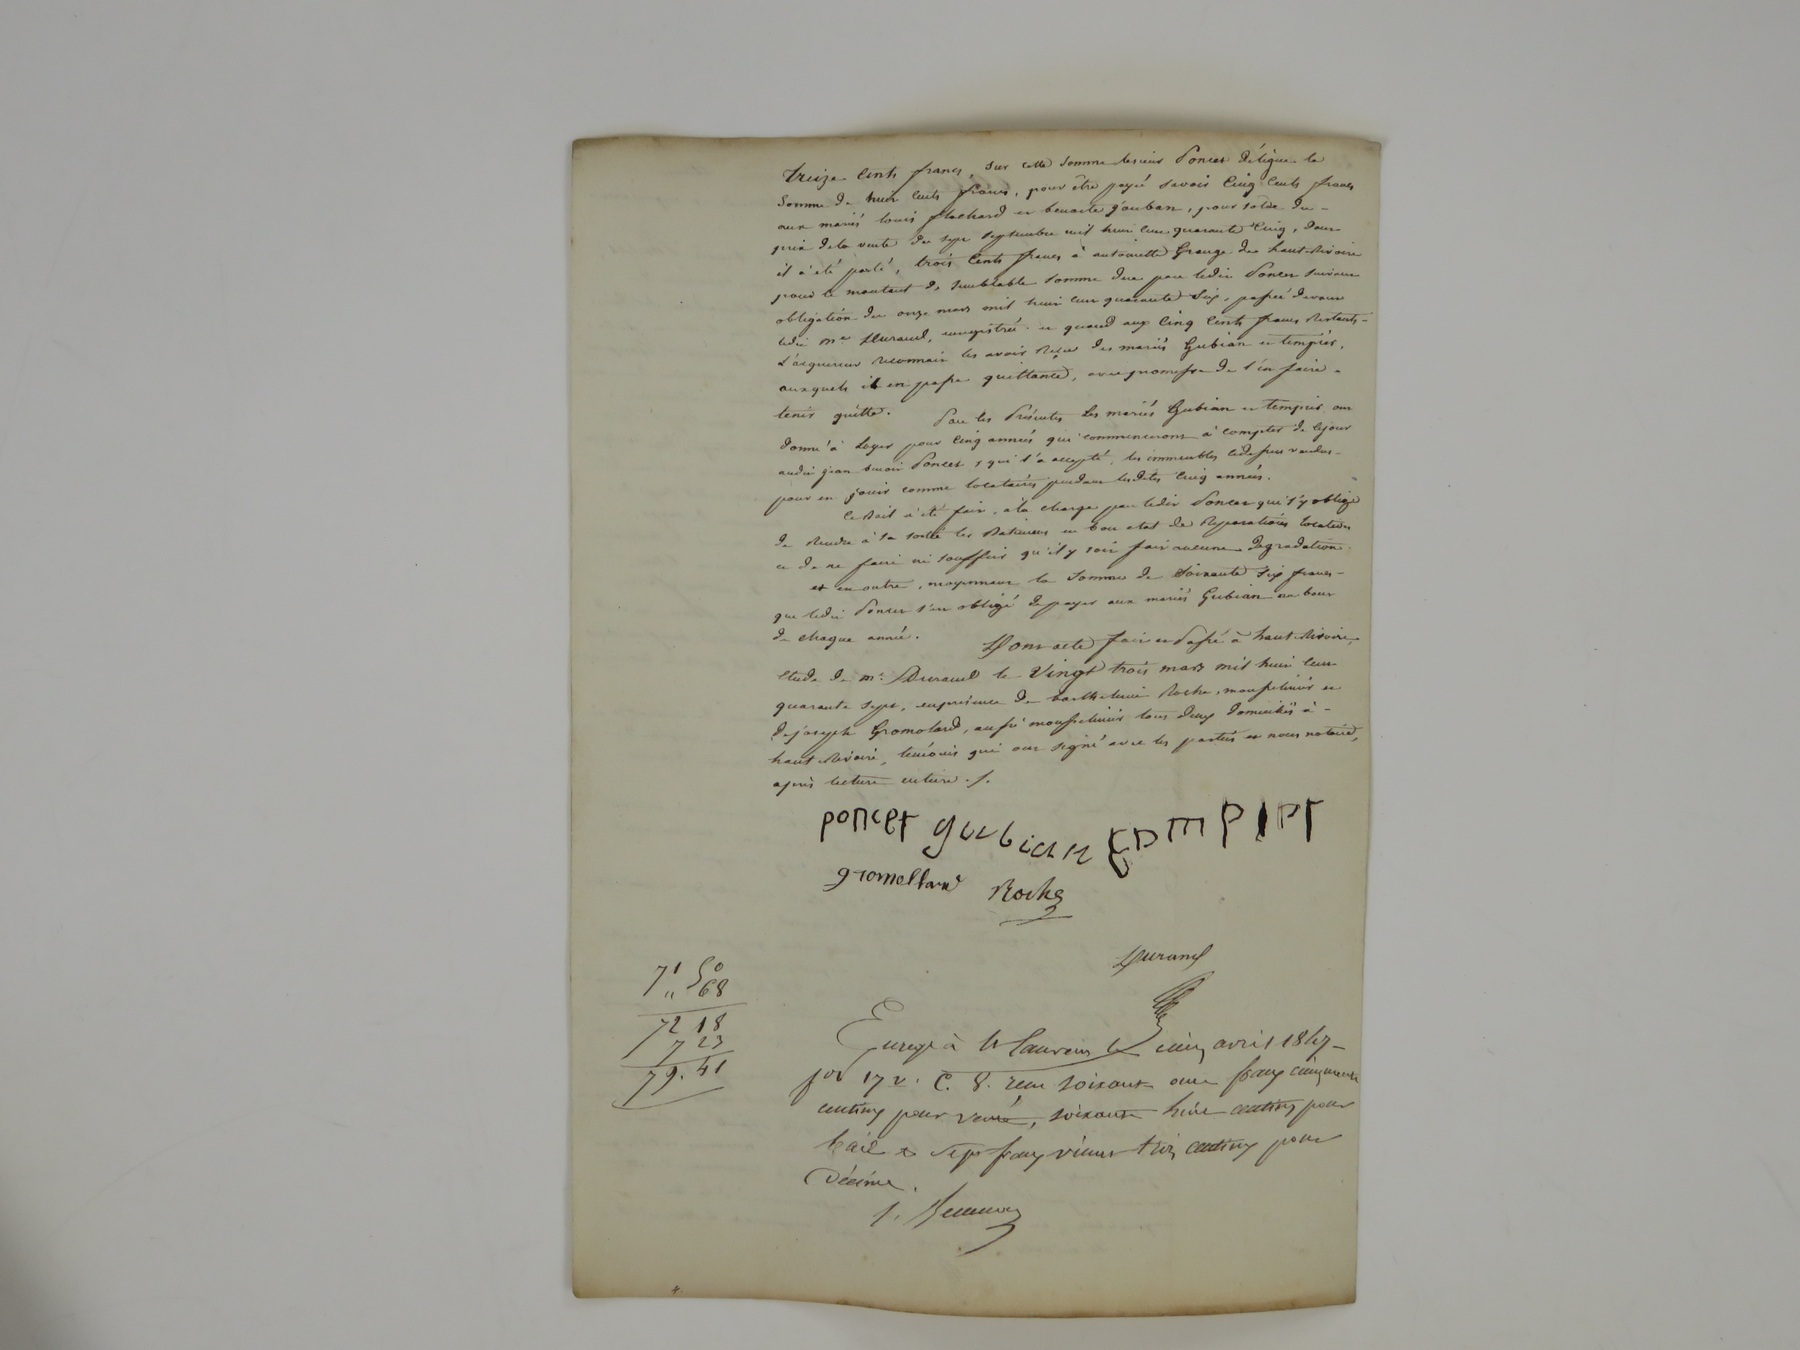 treize cents francs, sur cette somme le sieur Poncet délègue la
somme de huit cents francs, pour être payé savoir Cinq cents francs
aux mariés louis flachard et benoite joubau, pour solde du
prix de la vente du sept septembre mil huit cent quarante Cinq, dont
il a été parlé, trois cents francs à antoinette Grange de haut-Rivoire
pour le montant de semblable somme due par ledit Poncet suivant
obligation du onze mars mil huit cent quarante six, passée devant
ledit me Durand, enregistrée. et quand aux Cinq cents francs Restants
L'acquereur reconnait les avoir Reçu des mariés Gubian et tempier,
auxquels il en passe quittance, avec promesse de l'en faire
tenir quitte. Par les Présentes Les mariés Gubian et tempier ont
donné à loyer pour Cinq années qui commenceront à compter de ce jour
audit jean Poncet, qui l'a accepté, les immeubles cidessus vendus
pour en jouir comme locataire pendant lesdites Cinq années.
Ce Bail a été fait, à la charge par ledit Poncet qui s'y oblige
de Rendre à sa sortie les Batiments en bon etat de Réparations locatives
et de ne faire ni souffrir qu'il y soit fait aucune degradation.
et en outre, moyennant la somme de Soixante Six francs
que ledit Poncet s'est obligé de payer aux mariés Gubian au bout
de chaque année. Dont acte fait et Passé à haut-Rivoire,
étude de me Durand le Vingt trois mars mil huit cent
quarante sept, en présence de barthelemi Roche, et
de joseph Gromolard, aussi tous deux domiciliés à
haut-Rivoire, témoins qui ont signé avec les parties et nous notaire,
après lecture entière ./.
poncet gubian tempier
gromollard Roche
Durand
71 50
" 68
72 18
7 23
79.41
Enregé à St Laurent le cinq avril 1847
fol 172 v. C. 8. reçu soixante onze francs cinquante
centimes pour vente, soixante huit centimes pour
bail et sept francs vingt trois centimes pour
Décime.